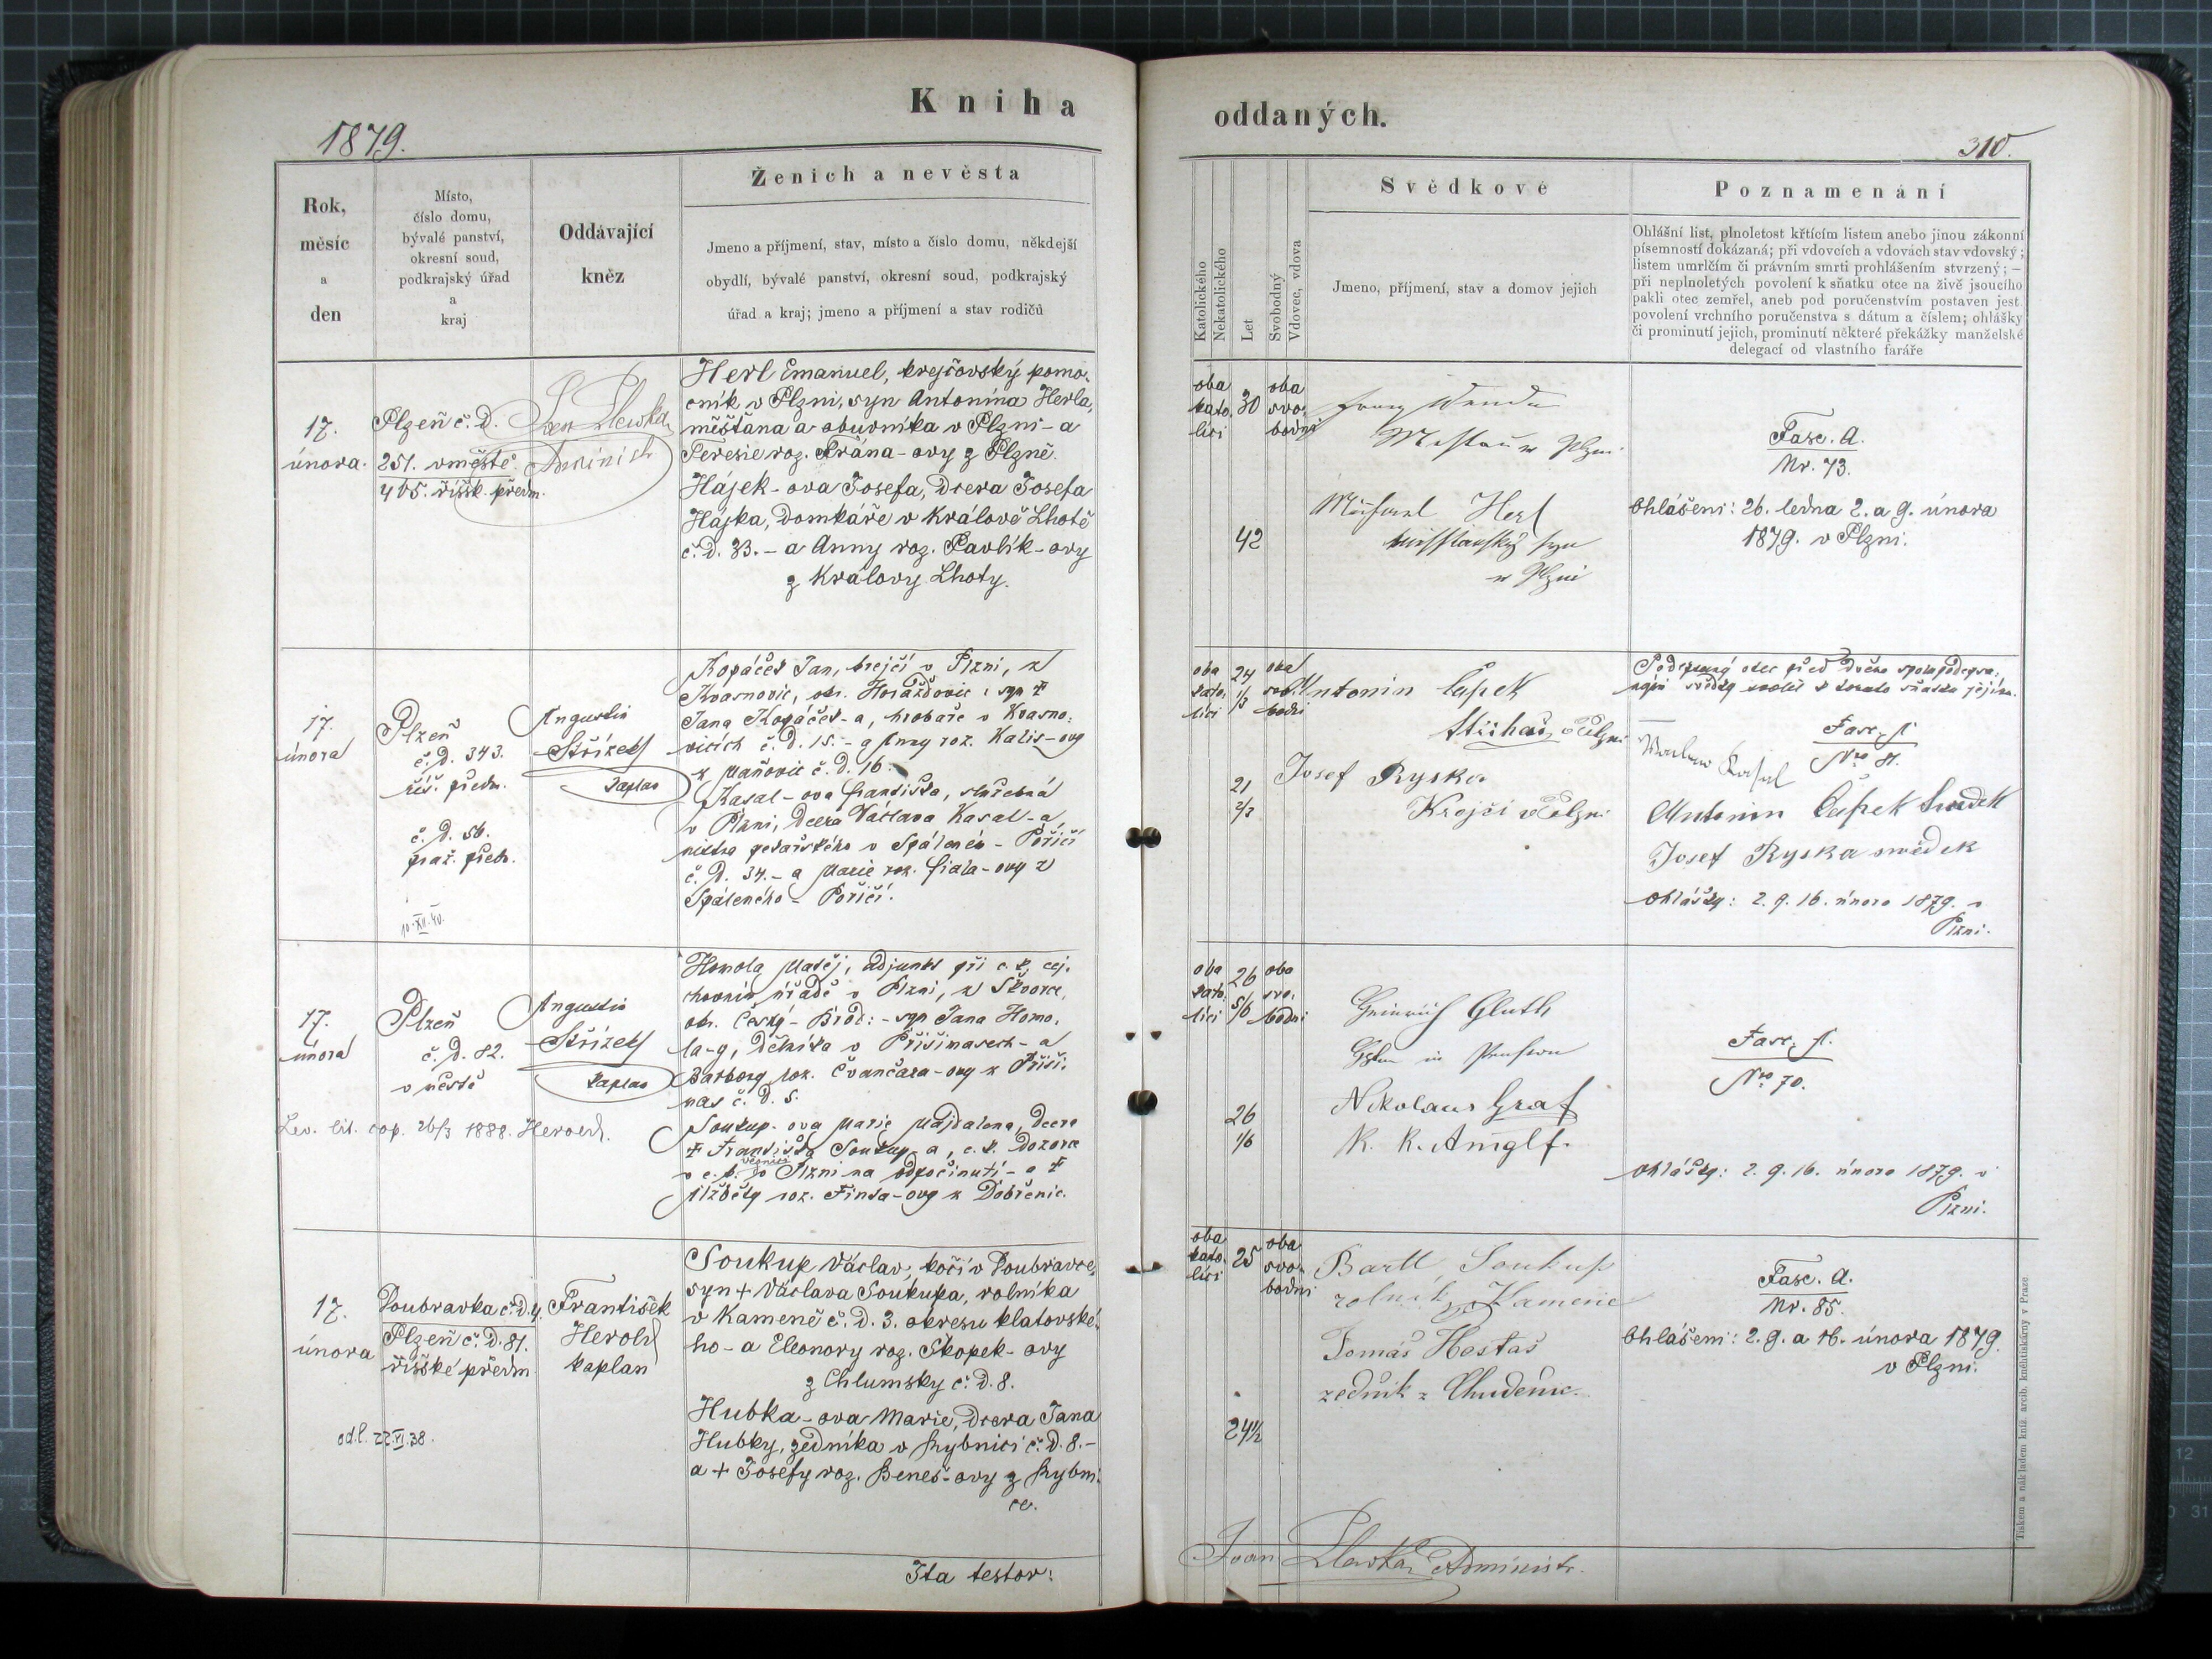 Kniha
oddaných.
1879.
310.
Rok,
měsíc
a
den
Místo,
číslo domu,
bývalé panství,
okresní soud,
podkrajský úřad
a
kraj
Oddávající
kněz
Ženich a nevěsta
Jmeno a příjmení, stav, místo a číslo domu, někdejší
obydlí, bývalé panství, okresní soud, podkrajský
úřad a kraj; jmeno a příjmení a stav rodičů
Katolického
Nekatolického
Let
Svobodný
Vdovec, vdova
Svědkové
Jmeno, příjmení, stav a domov jejich
Poznamenání
Ohlášní list, plnoletost křtícím listem anebo jinou zákonní
písemností dokázaná; při vdovcích a vdovách stav vdovský;
listem umrlčím či právním smrti prohlášením stvrzený; —
při neplnoletých povolení k sňatku otce na živě jsoucího
pakli otec zemřel, aneb pod poručenstvím postaven jest
povolení vrchního poručenstva s dátum a číslem; ohlášky
či prominutí jejich, prominutí některé překážky manželské
delegací od vlastního faráře
17.
února.
Plzeň č. D.
251. v městě.
465. říšsk. předm.
Herl Emanuel, krejčovský pomo-
cník v Plzni, syn Antonína Herla,
měšťana a obuvníka v Plzni - a
Teresie roz. Trána-ovy z Plzně.
Hájek-ova Josefa, dcera Josefa
Hájka, domkáře v Králově Lhotě
č. D. 33. - a Anny roz. Pavlík-ovy
z Královy Lhoty.
oba
kato.
líci
30
oba
svo.
bodni
42
Herl
Fasc. A.
Nr. 73.
Ohlášeni: 26. ledna 2. a 9. února
1879. v Plzni.
17.
února
Plzeň
č. D. 343.
říš. předm.
č. D. 56.
praž. předm.
10.XII.40.
Augustin
Střízek
kaplan
Kopáček Jan, krejčí v Plzni, z
Kvasnovic, okr. Horažďovic: syn †
Jana Kopáček-a, hrobaře v Kvasno:
vicích č. D. 15. - a Anny roz. Kalis-ovy
z Maňovic č. D. 16.
Kasal-ova Františka, služebná
v Plzni, dcera Václava Kasal-a,
mistra pekařského v Spáleném-Poříčí
č. D. 34. - a Marie roz. Fiala-ovy z
Spáleného-Poříčí.
oba
kato.
líci
24
1/3
oba
svo
bodni
21
2/3
Antonín Čapek
Střihač v Plzni
Josef Ryska
Krejčí v Plzni
Fasc. A
Nro 81.
Antonin Čapek Svědek
Josef Ryska svědek
Ohlášky: 2. 9. 16. února 1879. v
Plzni.
17.
února
Plzeň
č. D. 82.
v městě
Augustin
Střízek
kaplan
Homola Matěj, adjunkt při c. k. cej.
chovním úřadě v Plzni, z Škvorce,
okr. Český-Brod: - syn Jana Homo.
la-y, dělníka v Přišimasech - a
Barbory roz. Čvančara-ovy z Přiši-
mas č. D. 5.
Soukup-ova Marie Majdalena, dcera
† Františka Soukup-a, c. k. dozorce
v c. k. věznici v Plzni na odpočinutí - a †
Alžběty roz. Finda-ovy z Dobřenic.
oba
kato.
líci
26
5/6
oba
svo.
bodni
26
1/6
Heinrich Gluth
Nikolaus Graf
Fasc. A.
Nro 70.
Ohlášky: 2. 9. 16. února 1879. v
Plzni.
17.
února
Doubravka č. D. 4.
Plzeň č. D. 81.
říšské předm.
odl. 22.VI.38.
František
Herold
kaplan
Soukup Václav, kočí v Doubravce,
syn † Václava Soukupa, rolníka
v Kameně č. D. 3. okresu klatovské-
ho - a Eleonory roz. Skopek-ovy
z Chlumsky č. D. 8.
Hubka-ova Marie, dcera Jana
Hubky, zedníka v Rybnici č. D. 8. -
a † Josefy roz. Beneš-ovy z Rybni-
ce.
oba
kato.
líci
25
oba
svo-
bodni
24½
Bartl. Soukup
rolník z Kamene
Tomáš Hestaš
zedník z Chudenic.
Fasc. A.
Nr. 85.
Ohlášeni: 2. 9. a 16. února 1879.
v Plzni.
Ita testor:
Administr.
Tiskem a nákladem kníž. arcib. knihtiskárny v Praze